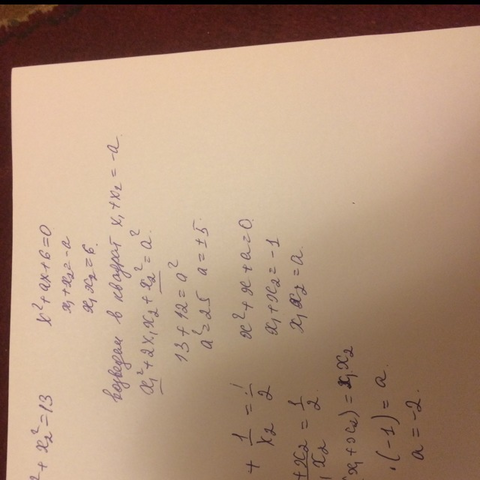 ² + x₂² = 13 x² + ax + 6 = 0
x₁ + x₂ = -a
x₁ x₂ = 6.
возведем в квадрат x₁ + x₂ = -a.
x₁² + 2x₁x₂ + x₂² = a²
13 + 12 = a²
a² = 25 a = ±5.
+ 1/x₂ = 1/2 x² + x + a = 0.
+ x₂ / x₂ = 1/2 x₁ + x₂ = -1
x₁ x₂ = a.
x₁ + x₂) = x₁x₂
·(-1) = a.
a = -2.